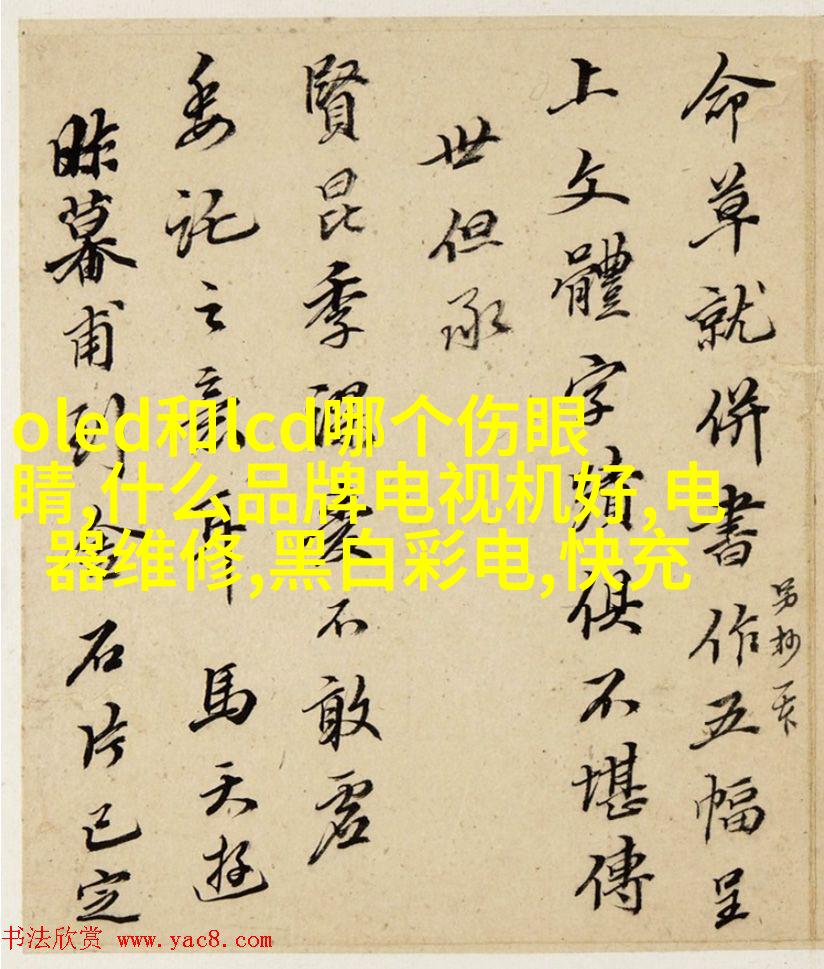 命草就併書作五幅呈
另抄一
上文體字俱不堪傳
世但承
賢昆季不敢虛
委託之意耳馬天游
昨暮甫到舍石片已定
oled和lcd哪个伤眼
睛,什么品牌电视机好,电
器维修,黑白彩电,快充
书法欣赏 www.yac8.com